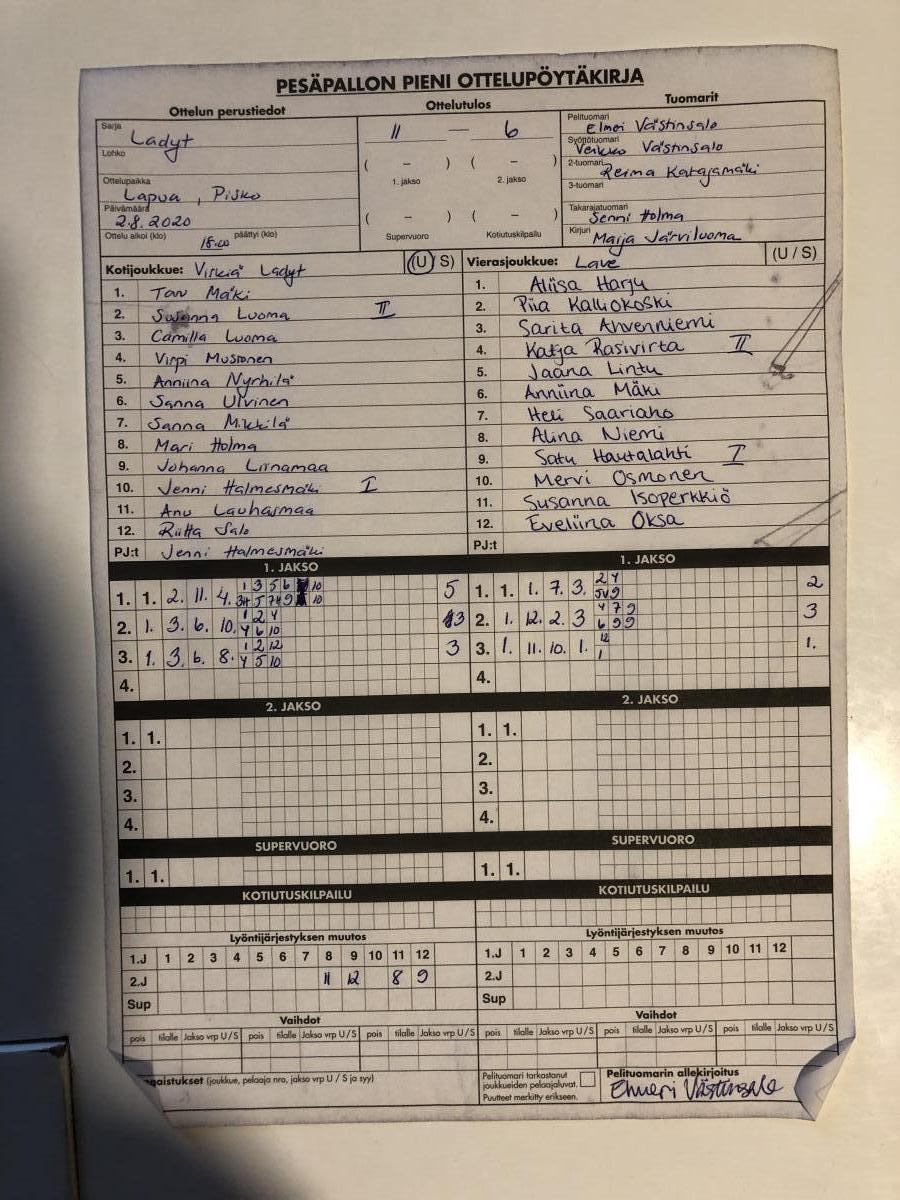 PESÄPALLON PIENI OTTELUPÖYTÄKIRJA
Ottelun perustiedot
Sarja Ladyt
Lohko
Ottelupaikka Lapua, Pisko
Päivämäärä 2.8.2020
Ottelu alkoi (klo) 18.00 päättyi (klo)
Ottelutulos
11 — 6
( – ) ( – )
1. jakso 2. jakso
( – ) ( – )
Supervuoro Kotiutuskilpailu
Tuomarit
Pelituomari Elmeri Västinsalo
Syöttötuomari Veikko Västinsalo
2-tuomari Reima Katajamäki
3-tuomari
Takarajatuomari Senni Holma
Kirjuri Marja Järviluoma
Kotijoukkue: Virkiä Ladyt (U / S)
1. Mäki
2. Susanna Luoma II
3. Camilla Luoma
4. Virpi Mustonen
5. Anniina Nyrhilä
6. Sanna Ulvinen
7. Sanna Mikkilä
8. Mari Holma
9. Johanna Liinamaa
10. Jenni Halmesmäki I
11. Anu Lauhasmaa
12. Riitta Salo
PJ:t Jenni Halmesmäki
Vierasjoukkue: Lave (U / S)
1. Aliisa Harju
2. Piia Kalliokoski
3. Sarita Ahvenniemi
4. Katja Rasivirta II
5. Jaana Lintu
6. Anniina Mäki
7. Heli Saariaho
8. Alina Niemi
9. Satu Hautalahti I
10. Mervi Osmonen
11. Susanna Isoperkkiö
12. Eveliina Oksa
PJ:t
1. JAKSO
1. 1. 2. 11. 4. 1 3 5 6 10 5
34 5 7 9 10
2. 1. 3. 6. 10. 1 2 4 3
4 6 10
3. 1. 3. 6. 8. 1 2 12 3
4 5 10
4.
1. JAKSO
1. 1. 1. 7. 3. 2 4 2
9
2. 1. 12. 2. 3 4 7 9 3
6 9 9
3. 1. 11. 10. 1. 12 1.
1
4.
2. JAKSO
1. 1.
2.
3.
4.
2. JAKSO
1. 1.
2.
3.
4.
SUPERVUORO
1. 1.
SUPERVUORO
1. 1.
KOTIUTUSKILPAILU
KOTIUTUSKILPAILU
Lyöntijärjestyksen muutos
1.J 1 2 3 4 5 6 7 8 9 10 11 12
2.J 11 12 8 9
Sup
Lyöntijärjestyksen muutos
1.J 1 2 3 4 5 6 7 8 9 10 11 12
2.J
Sup
Vaihdot
pois tilalle Jakso vrp U/S pois tilalle Jakso vrp U/S pois tilalle Jakso vrp U/S
Vaihdot
pois tilalle Jakso vrp U/S pois tilalle Jakso vrp U/S pois tilalle Jakso vrp U/S
(joukkue, pelaaja nro, jakso vrp U / S ja syy)
Pelituomari tarkastanut
joukkueiden pelaajaluvat.
Puutteet merkitty erikseen.
Pelituomarin allekirjoitus
Elmeri Västinsalo